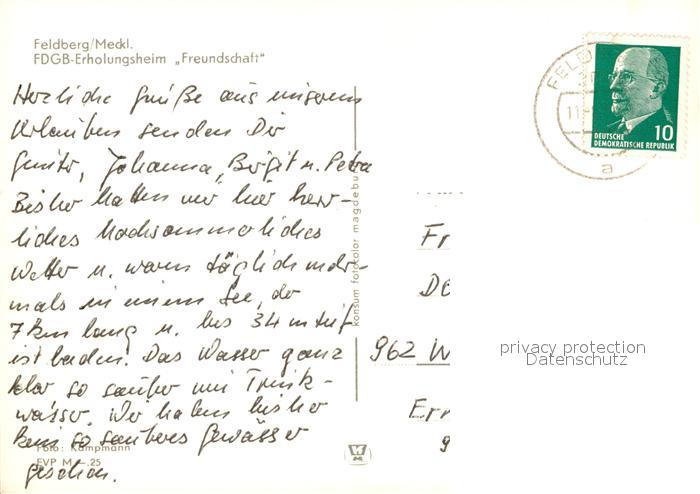 Feldberg/Meckl.
FDGB-Erholungsheim „Freundschaft"
Herzliche Grüße aus unserem
Urlaub senden Dir
Günter, Johanna, Birgit u. Petra
Bisher hatten wir hier herr-
liches hochsommerliches
Wetter u. waren täglich mehr-
mals in einem See, der
7 km lang u. bis 34 m tief
ist baden. Das Wasser ganz
klar so sauber wie Trink-
wasser. Wir haben bisher
kein so sauberes Gewässer
gesehen.
Foto: Kampmann
EVP M -.25
konsum fotocolor magdeburg
FELD
11
a
10
DEUTSCHE
DEMOKRATISCHE REPUBLIK
Fr
962 W
privacy protection
Datenschutz